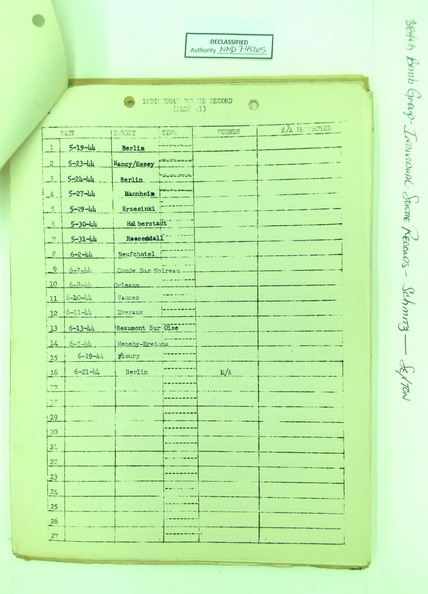 DECLASSIFIED
Authority NND 745005
384th Bomb Group - Individual Sortie Records - Schmitz — Sexton
INDIVIDUAL SORTIE RECORD
DATE TARGET TIME WOUNDS
1 5-19-44 Berlin
2 5-23-44 Nancy/Essey
3 5-24-44 Berlin
4 5-27-44 Mannheim
5 5-29-44 Krzesinki
6 5-30-44 Halberstadt
7 5-31-44
8 6-2-44 Neufchatel
9 6-7-44 Conde Sur Noireau
10 6-8-44 Orleans
11 6-10-44 Vannes
12 6-11-44 Evreaux
13 6-13-44 Beaumont Sur Oise
14
15 6-19-44 Fleury
16 6-21-44 Berlin N/A
17
18
19
20
21
22
23
24
25
26
27